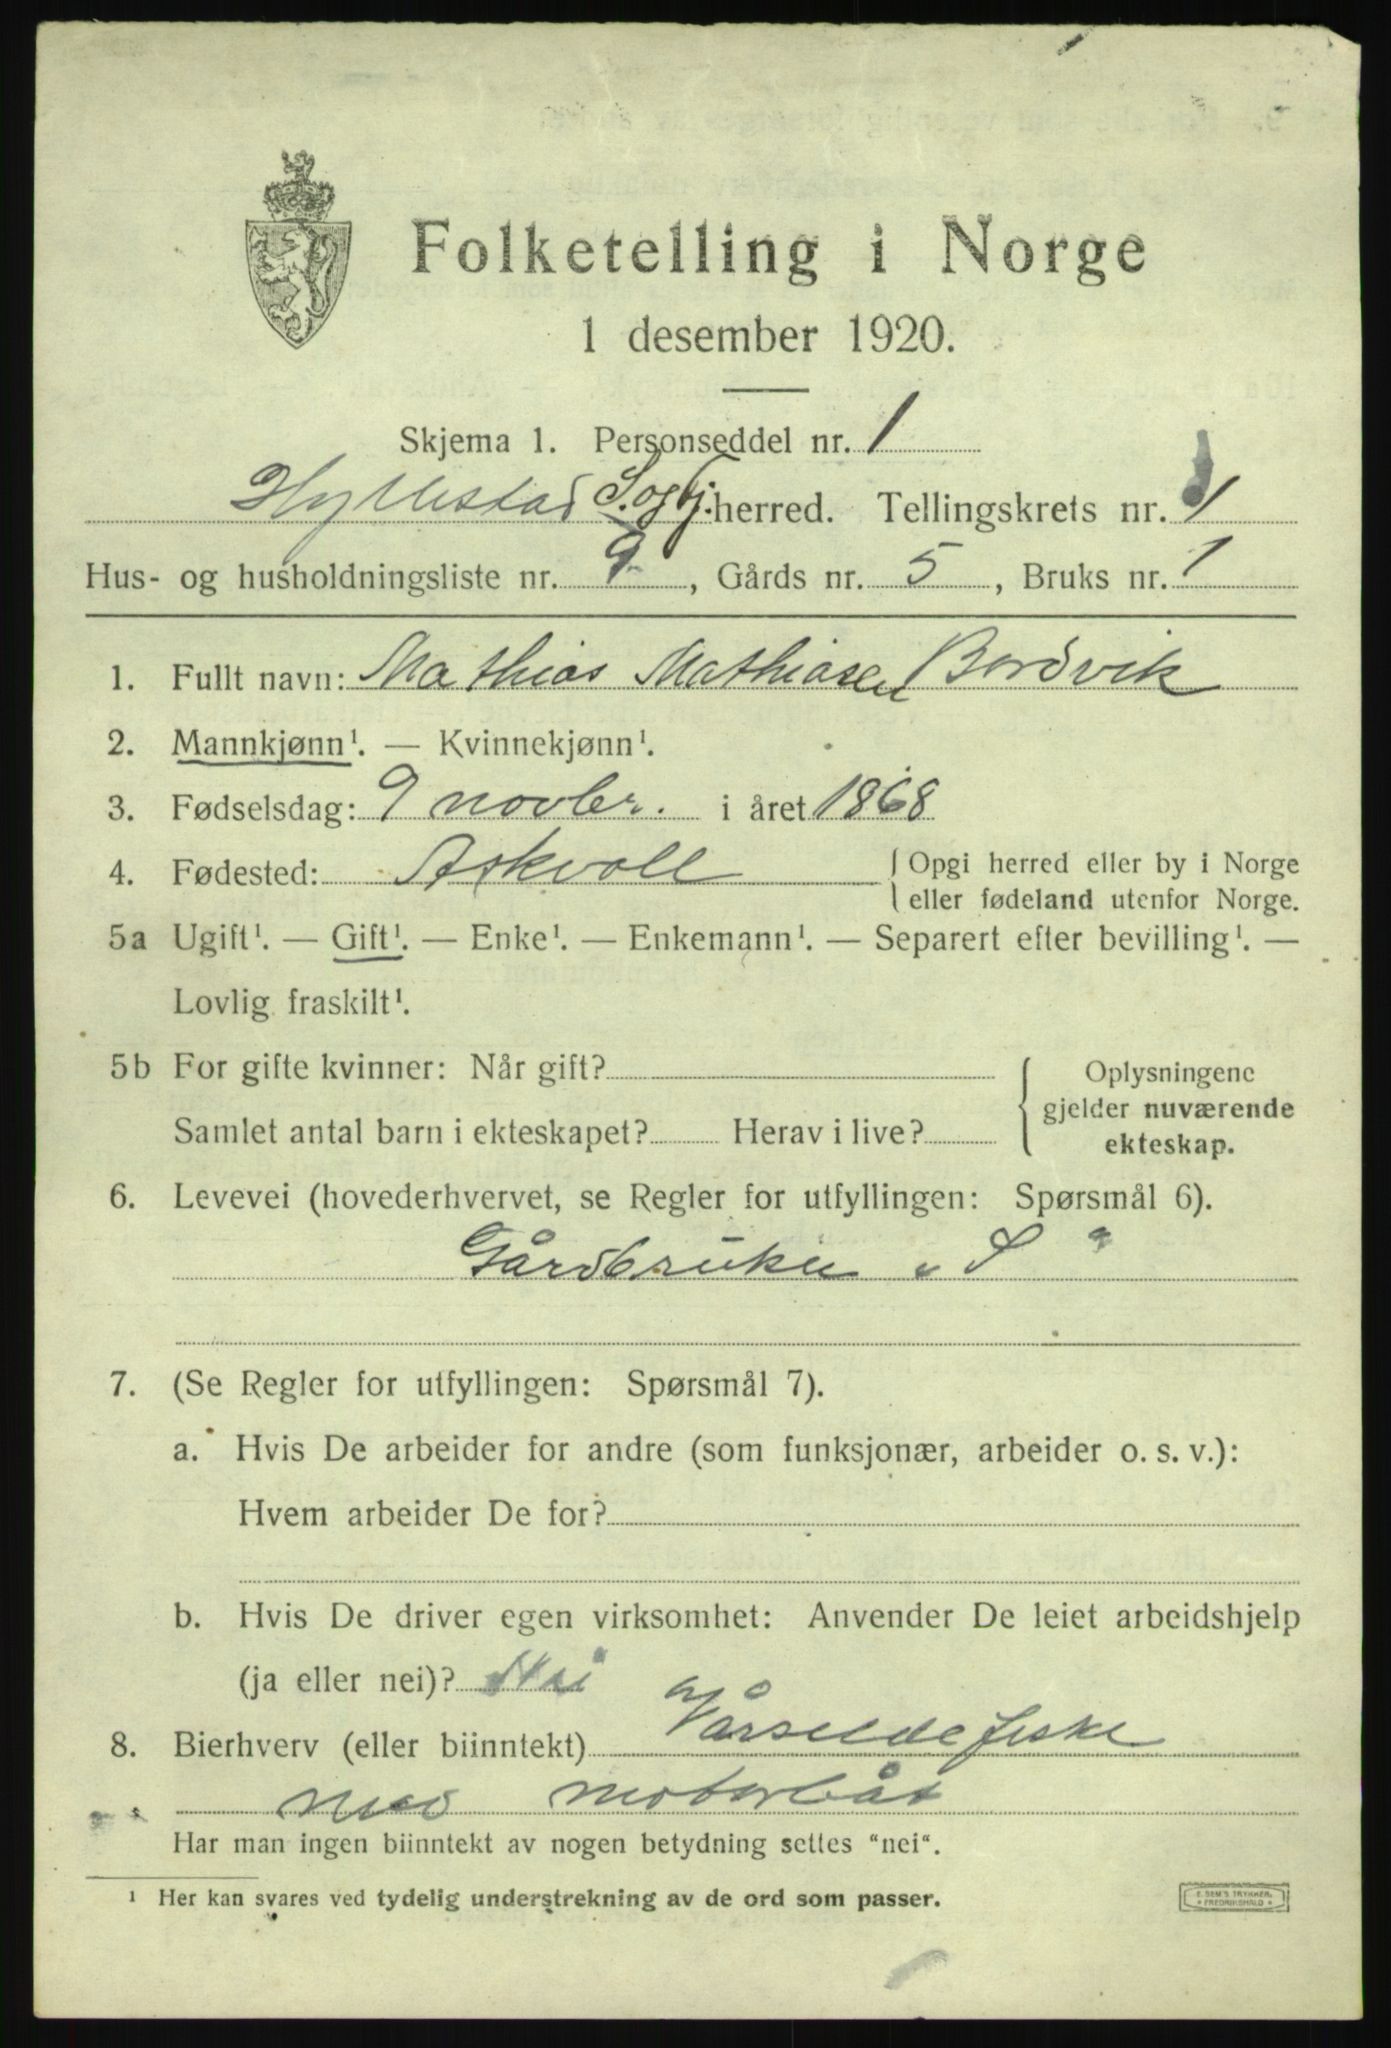 Folketelling i Norge
1 desember 1920.
Skjema 1. Personseddel nr. 1
Hyllestad S. og Fj. herred. Tellingskrets nr. 1
Hus- og husholdningsliste nr. 9, Gårds nr. 5, Bruks nr. 1
1. Fullt navn: Mathias Mathiasen Bordvik
2. Mannkjønn¹. — Kvinnekjønn¹.
3. Fødselsdag: 9 novbr. i året 1868
4. Fødested: Askvoll { Opgi herred eller by i Norge
eller fødeland utenfor Norge.
5a Ugift¹. — Gift¹. — Enke¹. — Enkemann¹. — Separert efter bevilling¹. —
Lovlig fraskilt¹.
5b For gifte kvinner: Når gift?
Samlet antal barn i ekteskapet? Herav i live?
Oplysningene
gjelder nuværende
ekteskap.
6. Levevei (hovederhvervet, se Regler for utfyllingen: Spørsmål 6).
Gårdbruker „S“
7. (Se Regler for utfyllingen: Spørsmål 7).
a. Hvis De arbeider for andre (som funksjonær, arbeider o. s. v.):
Hvem arbeider De for?
b. Hvis De driver egen virksomhet: Anvender De leiet arbeidshjelp
(ja eller nei)? Nei
8. Bierhverv (eller biinntekt) Vårsildefiske
med motorbåt
Har man ingen biinntekt av nogen betydning settes “nei“.
¹ Her kan svares ved tydelig understrekning av de ord som passer.
E. SEM'S TRYKKERI
FREDRIKSHALD